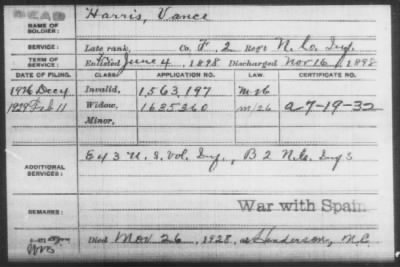 DEAD
NAME OF SOLDIER: Harris, Vance
SERVICE: Late rank, Co. F, 2 Reg't N.C. Inf.
TERM OF SERVICE: Enlisted June 4, 1898 Discharged Nov 16, 1898
DATE OF FILING. CLASS. APPLICATION NO. LAW. CERTIFICATE NO.
1926 Dec 4 Invalid, 1,563,197 m-26
1929 Feb 11 Widow, 1635360 m/26 a 7-19-32
Minor,
ADDITIONAL SERVICES: E 43 U.S. Vol. Inf., B 2 N.C. Inf
REMARKS: War with Spain
Died Nov. 26, 1928, at Henderson, N.C.